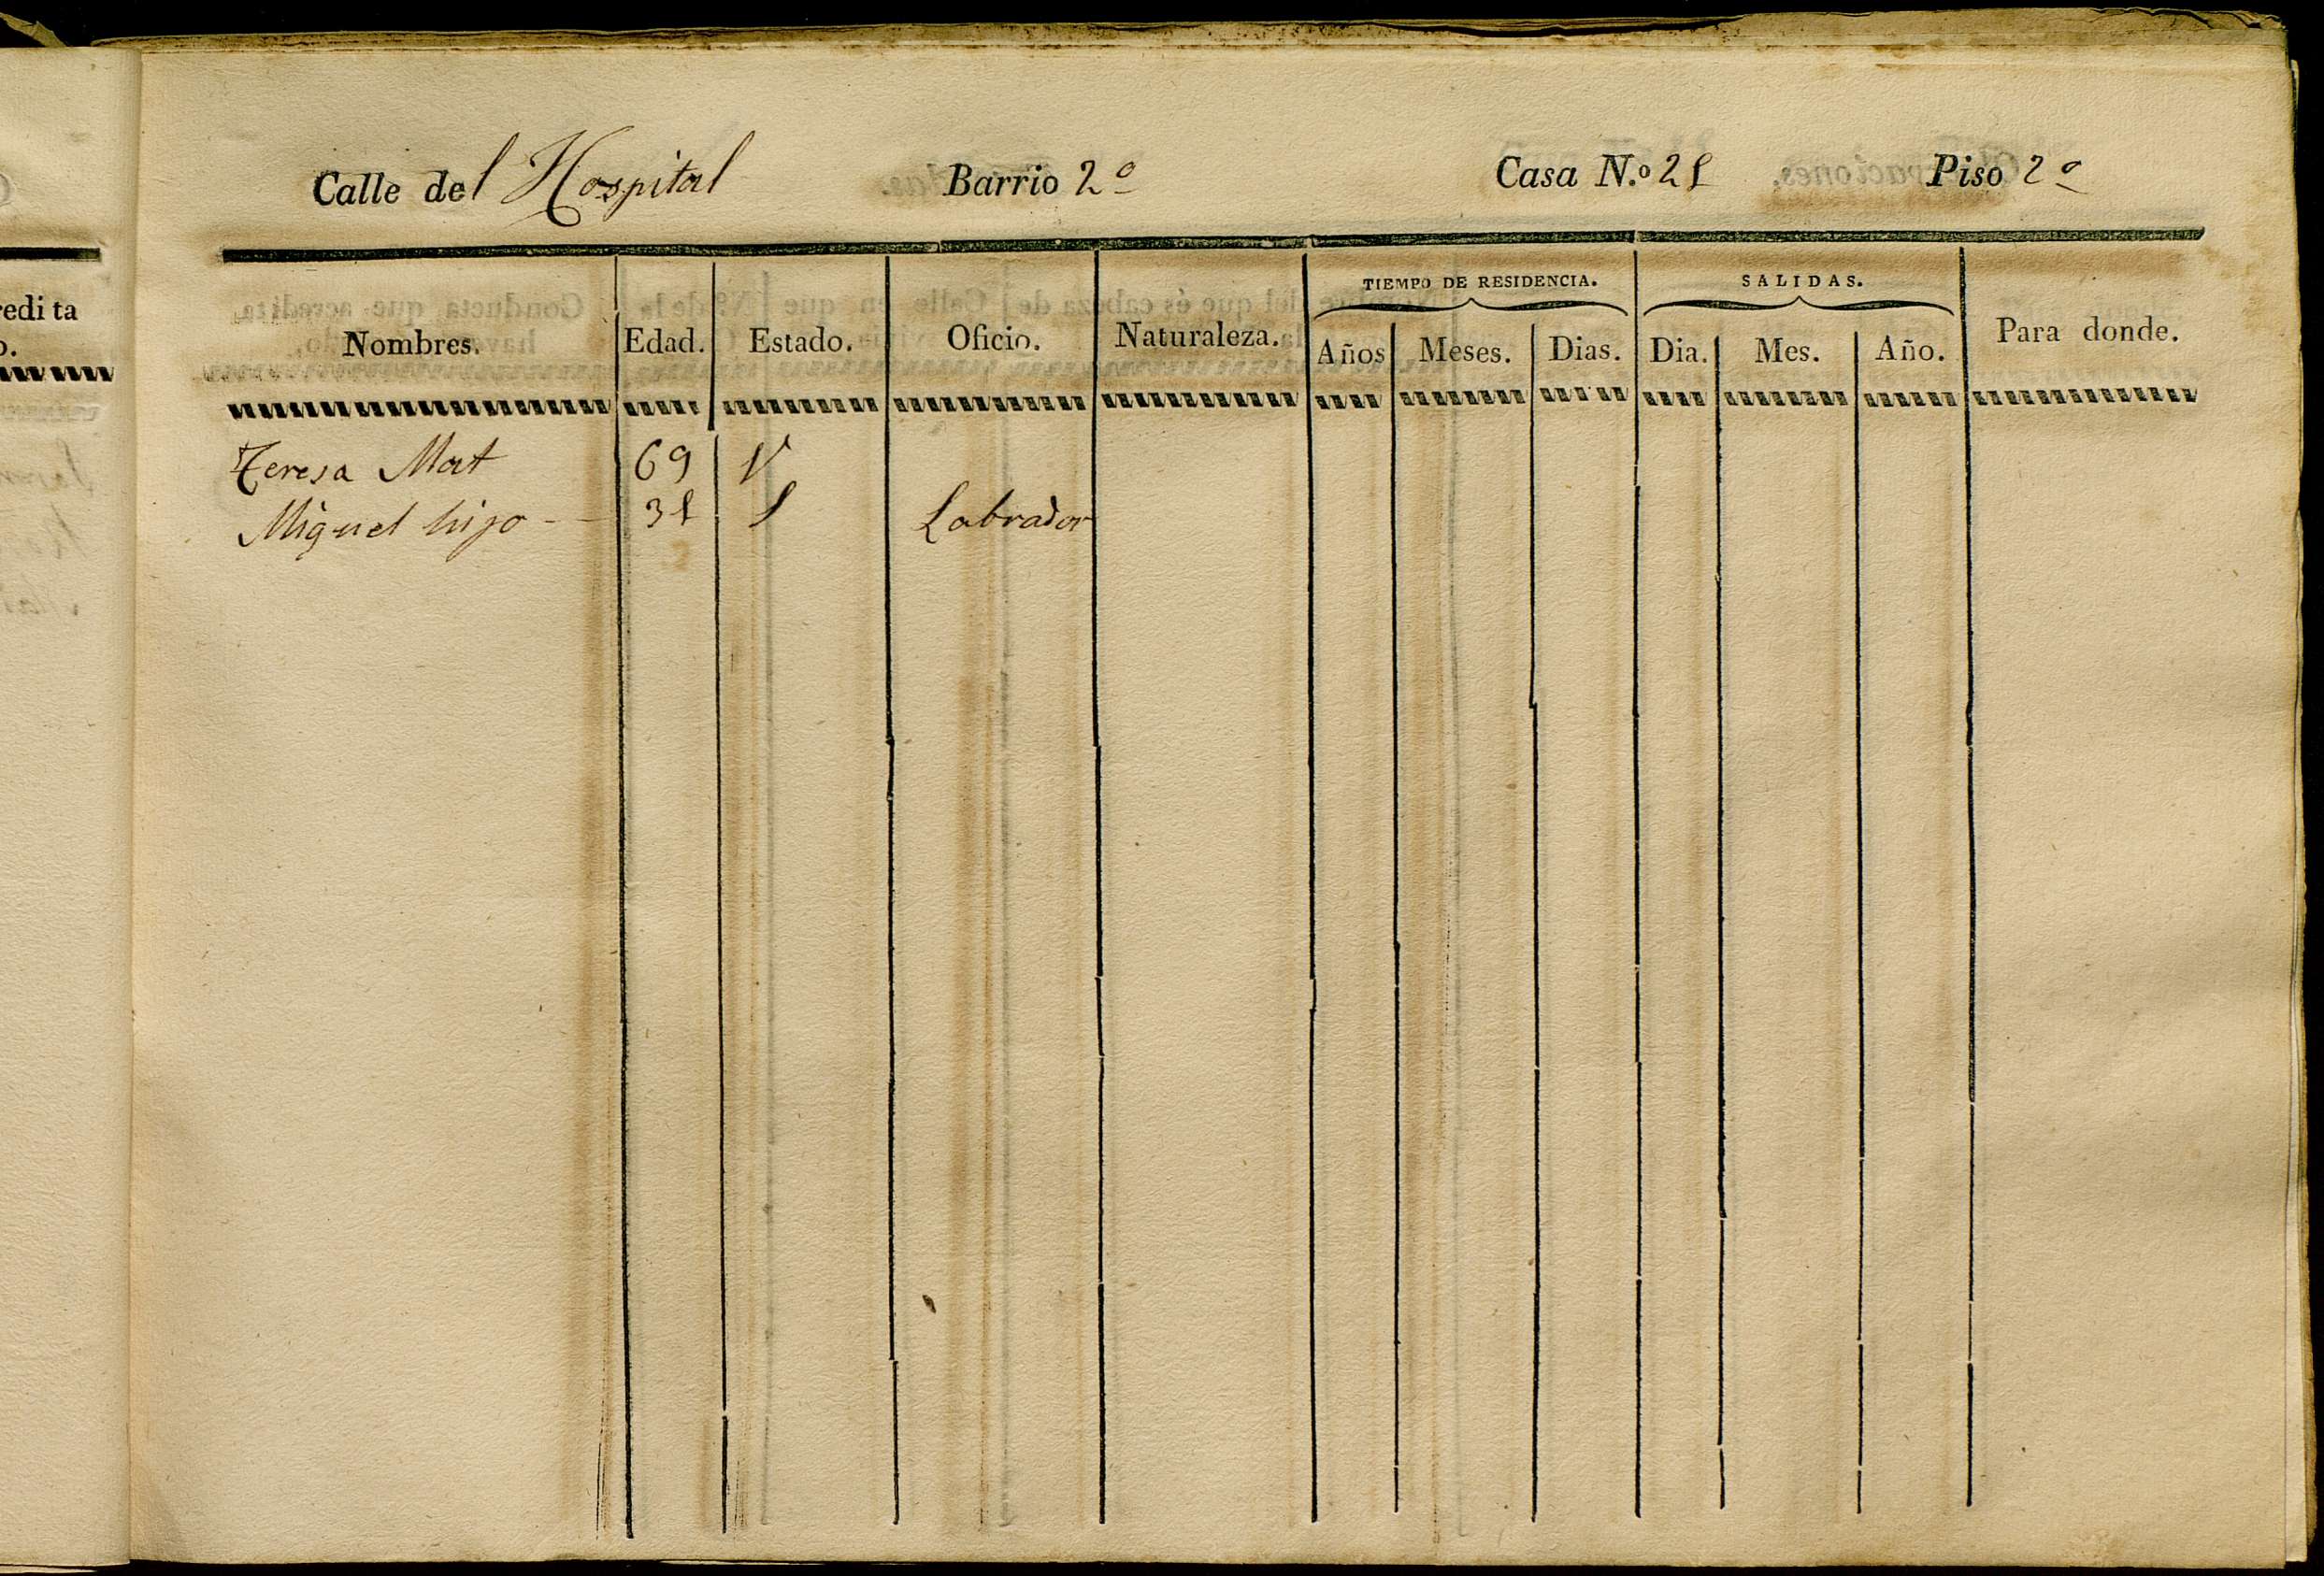 Calle del Hospital Barrio 2º Casa N.º 21 Piso 2º
TIEMPO DE RESIDENCIA. SALIDAS.
Nombres. Edad. Estado. Oficio. Naturaleza. Años Meses. Dias. Dia. Mes. Año. Para donde.
Teresa Mat 69 V
Miguel hijo - - 31 S Labrador
edita